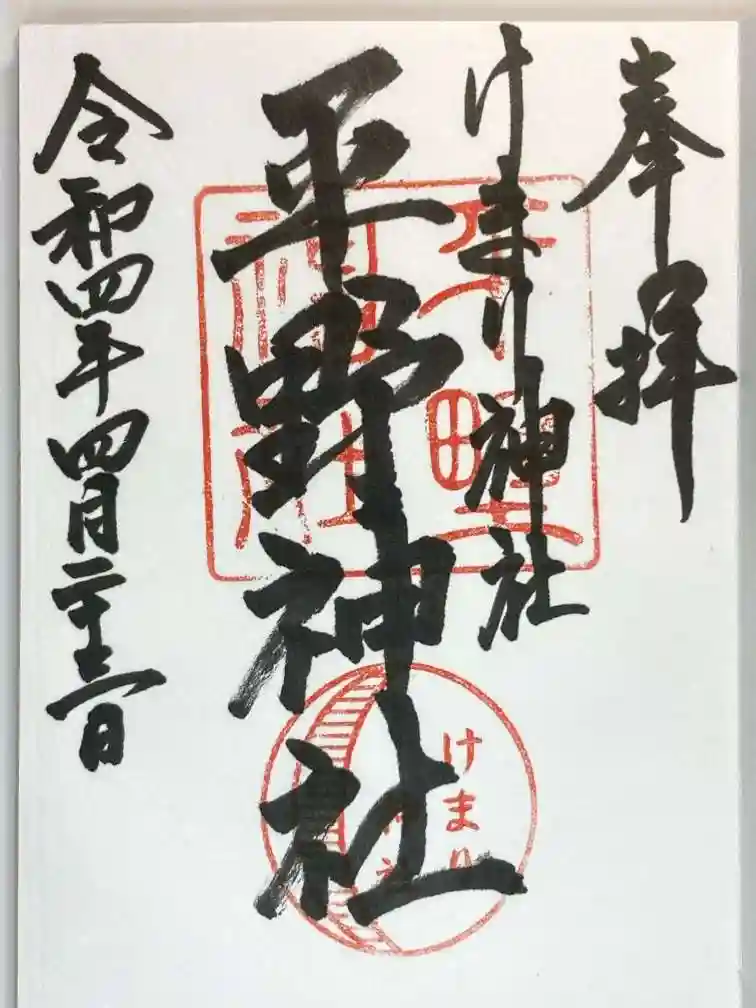 奉拝
けまり神社
平野神社
令和四年四月二十三日
平野
神社
けまり